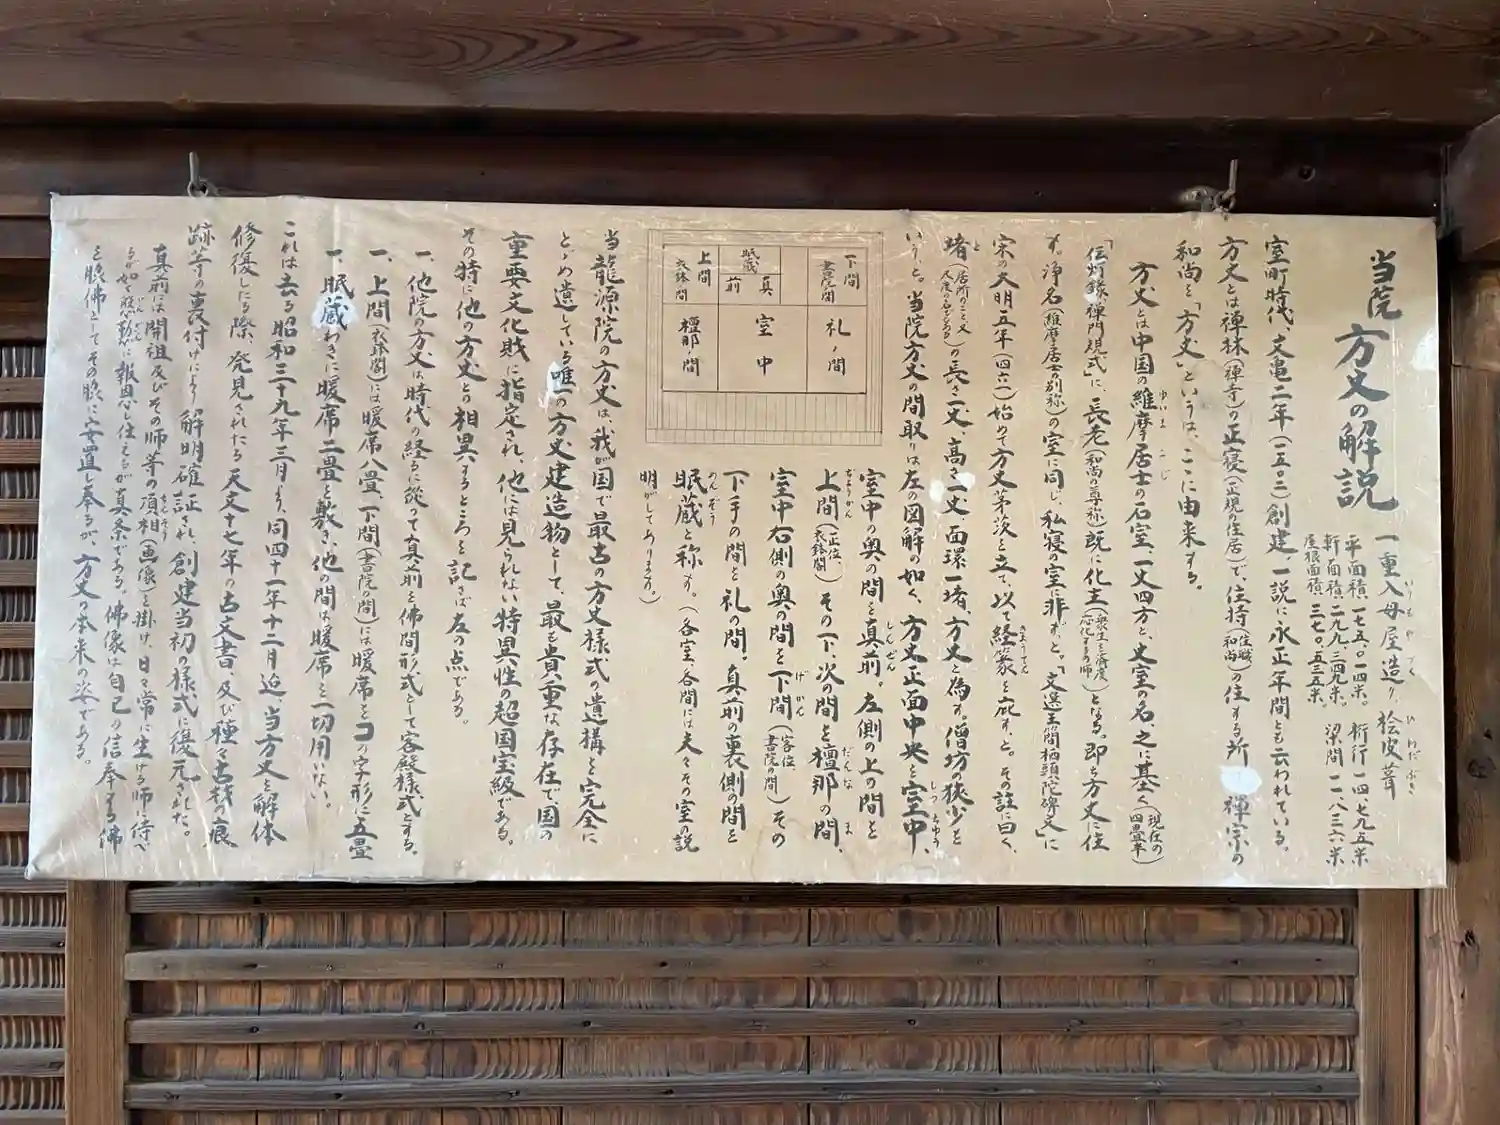 当院 方丈の解説
一重入母屋造り、桧皮葺
いりもやづく ひわだぶき
平面積、一七五・〇一四米。 桁行 一四・七九五米
軒面積、二九九・三四九米。 梁間 一一・八三六米
屋根面積、三七〇・五三五米。
室町時代、文亀二年(一五〇二)創建、一説に永正年間とも云われている。
方丈とは禅林(禅寺)の正寝(正規の住居)で、住持(住職、和尚)の住する所 禅宗の
和尚を「方丈」というは、ここに由来する。
方丈とは中国の維摩居士の石室、一丈四方と、丈室の名、之に基く(現在の四畳半)
ゆいま こじ
「伝灯録、禅門規式」に、長老(和尚の尊称)既に化主(衆生を済度応化するの師)となる。即ち方丈に住
す。浄名(維摩居士の別称)の室に同じ、私寝の室に非ず、と。「文選王簡栖頭陀碑文」に
宋の大明五年(四六一)始めて方丈茅茨を立て、以て経䇿を庇す、と。その註に曰く、
堵(居所のこと、又尺度の名である)の長さ一丈、高さ一丈、面環一堵、方丈と為す。僧坊の狭少を
と
いう、と。当院方丈の間取りは左の図解の如く、方丈正面中央を室中、
しっちゅう
室中の奥の間を真前。左側の上の間を
しんぜん
上間(正位、衣鉢間)その下、次の間を檀那の間、
じょうかん だんな ま
室中右側の奥の間を下間(客位、書院の間)その
げかん
下手の間を礼の間。真前の裏側の間を
眠蔵と称す。(各室、各間には夫々その室の説
めんぞう
明がしてあります。)
下間 書院間
礼ノ間
眠蔵
真前
室中
上間 衣鉢間
檀那ノ間
当龍源院の方丈は、我が国で最古の方丈様式の遺構を完全に
とゞめ遺している唯一の方丈建造物として、最も貴重な存在で、国の
重要文化財に指定され、他には見られない特異性の超国宝級である。
その特に他の方丈と相異するところを記さば左の点である。
一、他院の方丈は時代の経るに従って真前を佛間形式として客殿様式とする。
一、上間(衣鉢閣)には暖席八畳、下間(書院の間)には暖席をコの字形に五畳
一、眠蔵わきに暖席二畳を敷き、他の間は暖席を一切用いない。
これは去る昭和三十九年三月より、同四十一年十二月迄、当方丈を解体
修復したる際、発見されたる天文十七年の古文書、及び種々古材の痕
跡等の裏付けにより解明確証され、創建当初の様式に復元された。
真前には開祖及びその師等の頂相(画像)を掛け、日々常に生ける師に侍べ
ちんぞう
るが如く慇懃に報恩し仕えるが真条である。佛像は自己の信奉する佛
いんぎん
を脇佛としてその脇に安置し奉るが、方丈の本来の姿である。